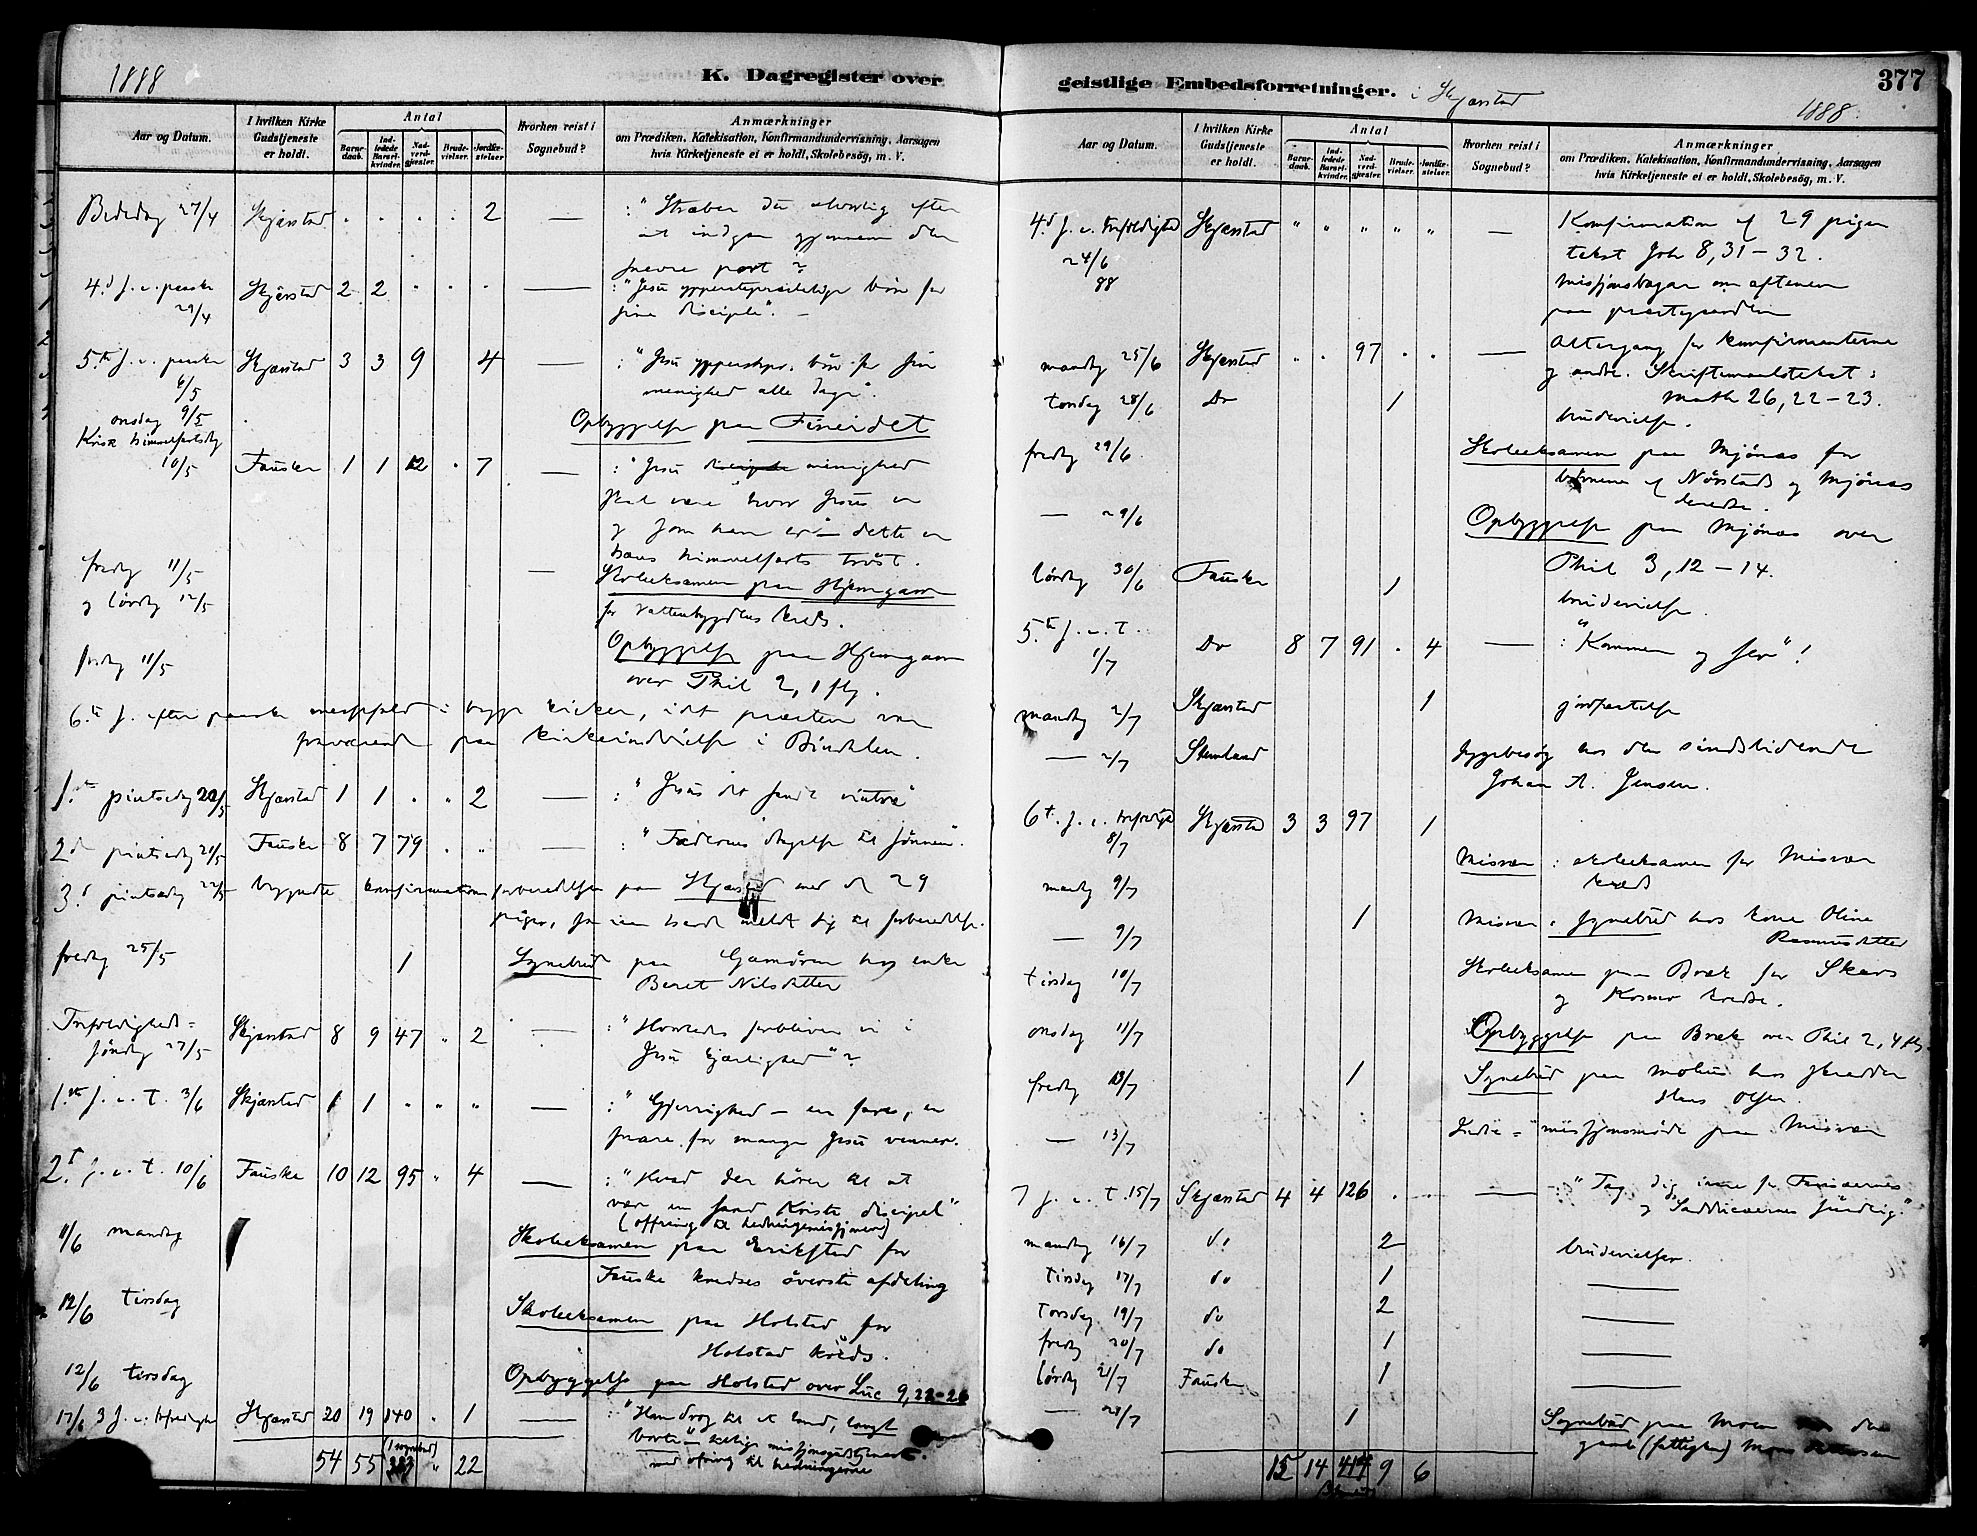 1888
K. Dagregister over
Aar og Datum.
I hvilken Kirke Gudstjeneste er holdt.
Antal
Barnedaab.
Indledede Barselkvinder.
Nadverdgjester.
Brudevielser.
Jordfæstelser
Hvorhen reist i Sognebud?
Anmærkninger
om Prædiken, Katekisation, Konfirmandundervisning, Aarsagen
hvis Kirketjeneste ei er holdt, Skolebesög, m. V.
Bededag 27/4 Skjærstad . . . . 2 — : "Stræber du alvorlig efter
at indgaa gjennem den
snevre port?
4.d s. e. paaske Skjærstad 2 2 . . . — : "Jesu ypperstepræstelige bön for
29/4 sine disciple". —
5.te s. e. paaske Skjærstad 3 3 9 4 — : "Jesu bön for sin
6/5 menighed alle dage".
onsdag 9/5 Opbyggelse paa Fineidet
Krist. himmelfartsdag
10/5 Fauske 1 1 12 . 7 — : "Jesu menighed
skal være hvor Jesus er
og som han er" — dette er
hans himmelfarts tröst.
fredag 11/5 — Skoleeksamen paa Hjemgam
og lördag 12/5 for Vattenbygdens kreds.
fredag 11/5 Opbyggelse paa Hjemgam
over Phil 2, 1 flg.
6.te s. efter paaske messefald i begge kirker, idet præsten var
fraværende paa kirkeindvielse i Bindalen.
1.ste pintsedag 20/5 Skjærstad 1 1 . " 2 — : "Jesus det sande vintræ"
2den pintsedag 21/5 Fauske 8 7 79 . " — : "Faderens dragelse til sönnen".
3.d pintsedag 22/5 begyndte konfirmationsforberedelsen paa Skjærstad med de 29
piger, som havde meldt sig til forberedelse.
fredag 25/5 1 Sognebud paa Gamören hos enke
Beret Nilsdatter
Trefoldigheds=
söndag 27/5 Skjærstad 8 9 47 " 2 — : "Hvorledes forbliver vi i
Jesu kjærlighed"?
1.ste s. e. t. 3/6 Skjærstad 1 1 " " " — : "Gjerrighed — en fare, en
snare for mange Jesu venner.
2.d s. e. t. 10/6 Fauske 10 12 95 " 4 — : "Hvad der hörer til at
være en sand Kristi discipel"
(offring til hedningemissjonen)
11/6 mandag Skoleeksamen paa Erikstad for
Fauske kredses överste afdeling
12/6 tirsdag Skoleeksamen paa Holstad for
Holstad kreds.
12/6 tirsdag Opbyggelse paa Holstad over Luc 9, 22-26
17/6 3 s. e. trefoldighed Skjærstad 20 19 140 " 1 — : "Han drog til et land, langt
borte"
med ofring til hedningerne
54 55 (1 sognebud) " 22
geistlige Embedsforretninger. i Skjærstad
377
1888.
Aar og Datum.
I hvilken Kirke Gudstjeneste er holdt.
Antal
Barnedaab.
Indledede Barselkvinder.
Nadverdgjester.
Brudevielser.
Jordfæstelser.
Hvorhen reist i Sognebud?
Anmærkninger
om Prædiken, Katekisation, Konfirmandundervisning, Aarsagen
hvis Kirketjeneste ei er holdt, Skolebesög, m. V.
4.d s. e. trefoldighed Skjærstad " " " " " — Konfirmation af 29 piger
24/6 tekst Joh 8, 31-32.
88 missjonsbazar om aftenen
paa præstegaarden
mandag 25/6 Skjærstad . . 97 . . — Altergang for konfirmanterne
og andre. Skriftemaalstekst:
Math 26, 22-23.
torsdag 28/6 Do 1 brudevielse.
fredag 29/6 Skoleeksamen paa Mjönes for
börnene af Nörstads og Mjönes
kredse.
— 29/6 Opbyggelse paa Mjönes over
Phil 3, 12-14.
lördag 30/6 Fauske 1 brudevielse.
5.te s. e. t.
1/7 Do 8 7 91 . 4 — : "Kommer og ser"!
mandag 2/7 Skjærstad 1 jordfæstelse
— 2/7 sygebesög hos den sindslidende
Johan A. Jensen.
6t. s. e. trefoldighed Skjærstad 3 3 97 1
8/7
mandag 9/7 Misvær: skoleeksamen for Misvær
kreds
— 9/7 1 Misvær, sognebud hos kone Oline
Rasmusdatter
tirsdag 10/7 Skoleeksamen paa Bræk for Skars
og Kosmo kredse.
onsdag 11/7 Opbyggelse paa Bræk over Phil 2, 4 flg.
fredag 13/7 1 Sognebud paa hos skrædder
Hans Olsen.
— 13/7 Indre= missjonsmöde paa Misvær
7 s. e. t. 15/7 Skjærstad 4 4 126 . . — : "Tag dig vare for Farisæernes
og Sadducæernes surdeig".
mandag 16/7 do 2 brudevielser.
tirsdag 17/7 do 1 —
torsdag 19/7 do 2 —
fredag 20/7 do 1 —
lördag 21/7 Fauske 1 —
— 1 Sognebud paa Moen
gamle (fattiglem)
15 14 9 6